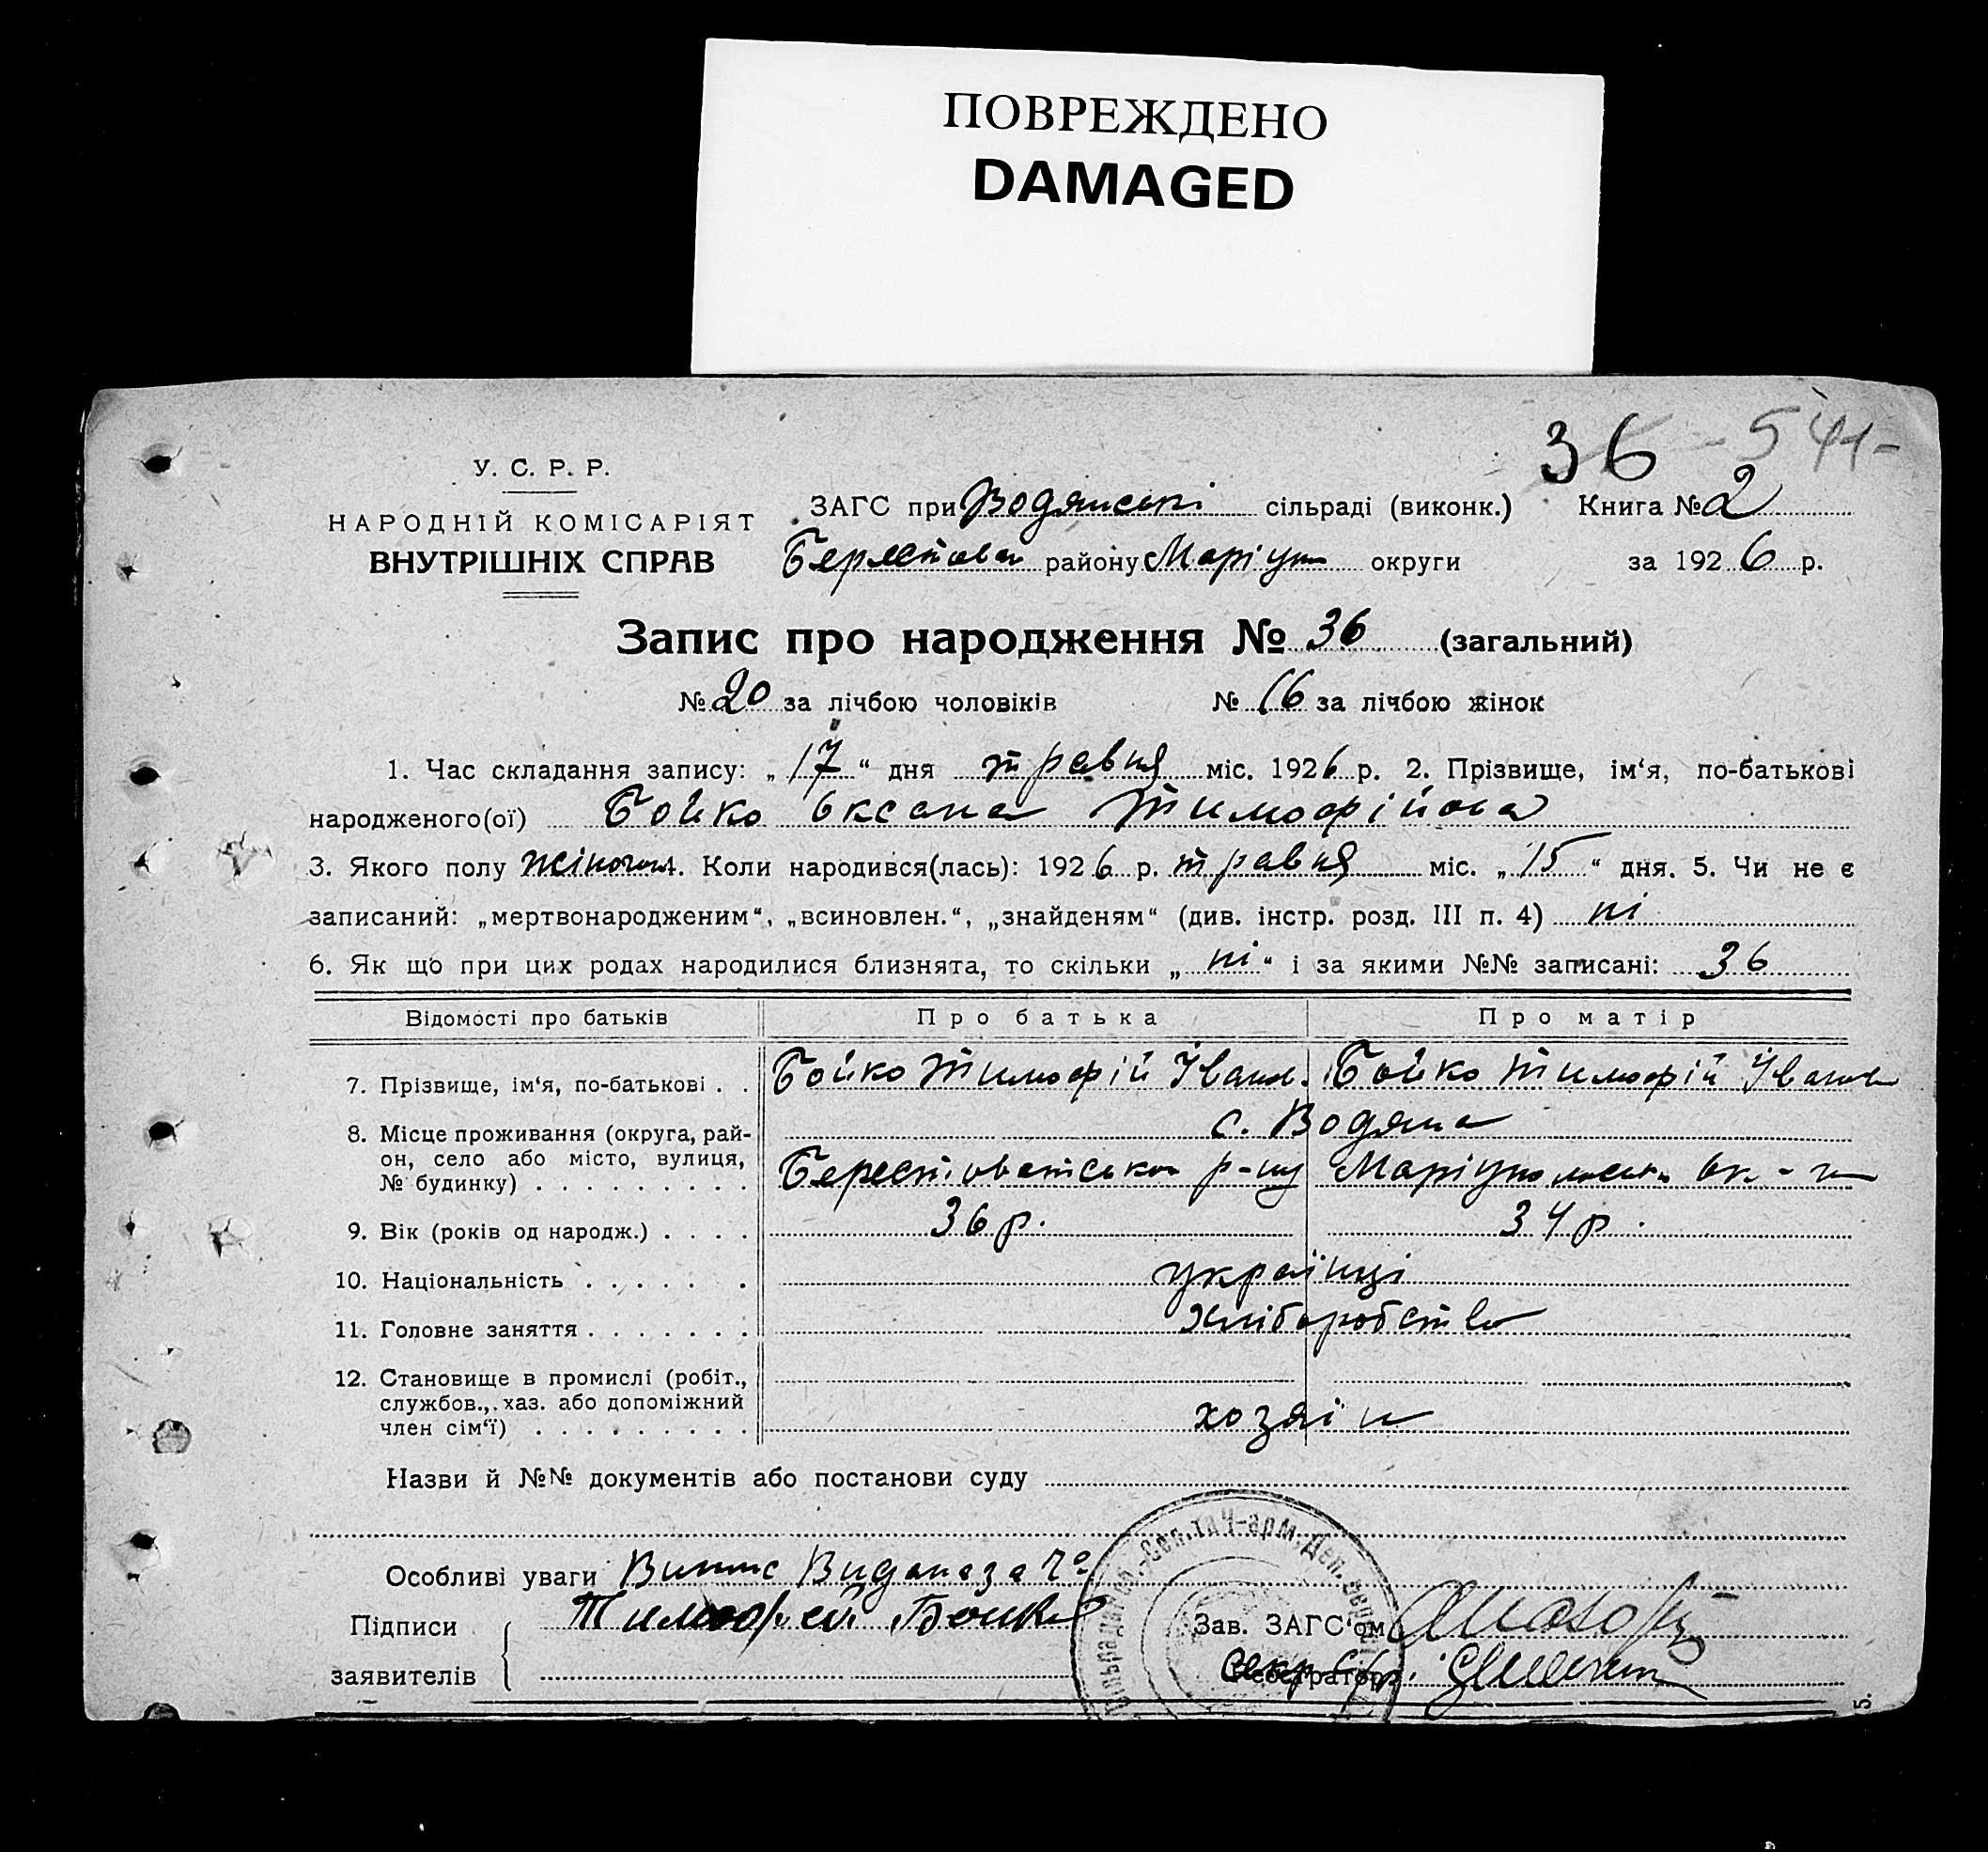 ПОВРЕЖДЕНО
DAMAGED
36 - 541-
У. С. Р. Р.
НАРОДНІЙ КОМІСАРІЯТ
ВНУТРІШНІХ СПРАВ
ЗАГС при Водянські сільраді (виконк.) Книга № 2
Берестова району Маріуп округи за 1926 р.
Запис про народження № 36 (загальний)
№ 20 за лічбою чоловіків № 16 за лічбою жінок
1. Час складання запису: „17“ дня травня міс. 1926 р. 2. Прізвище, ім‘я, по-батькові
народженого(ої) Бойко Оксана Тимофійова
3. Якого полу жіночого 4. Коли народився(лась): 1926 р. травня міс. „15“ дня. 5. Чи не є
записаний: „мертвонародженим“, „всиновлен.“, „знайденям“ (див. інстр. розд. III п. 4) ні
6. Як що при цих родах народилися близнята, то скільки „ні“ і за якими №№ записані: 36
Відомості про батьків Про батька Про матір
7. Прізвище, ім‘я, по-батькові . . Бойко Тимофій Іванов. Бойко Тимофій Іванов
8. Місце проживання (округа, рай-
он, село або місто, вулиця,
№ будинку) . . . . . . . . .
с. Водяна
Берестоватсько р-ну Маріупольсько ок-и
9. Вік (років од народж.) . . . . 36 р. 34 р.
10. Національність . . . . . . . українці
11. Головне заняття . . . . . . . хліборобство
12. Становище в промислі (робіт.,
службов., хаз. або допоміжний
член сім‘ї) . . . . . . . . . хозяїн
Назви й №№ документів або постанови суду
Особливі уваги Випис Видана за №
Підписи
заявителів
Тимофей Бойко
Зав. ЗАГС‘ом
Секр. С/р.
Реєстратор
5.